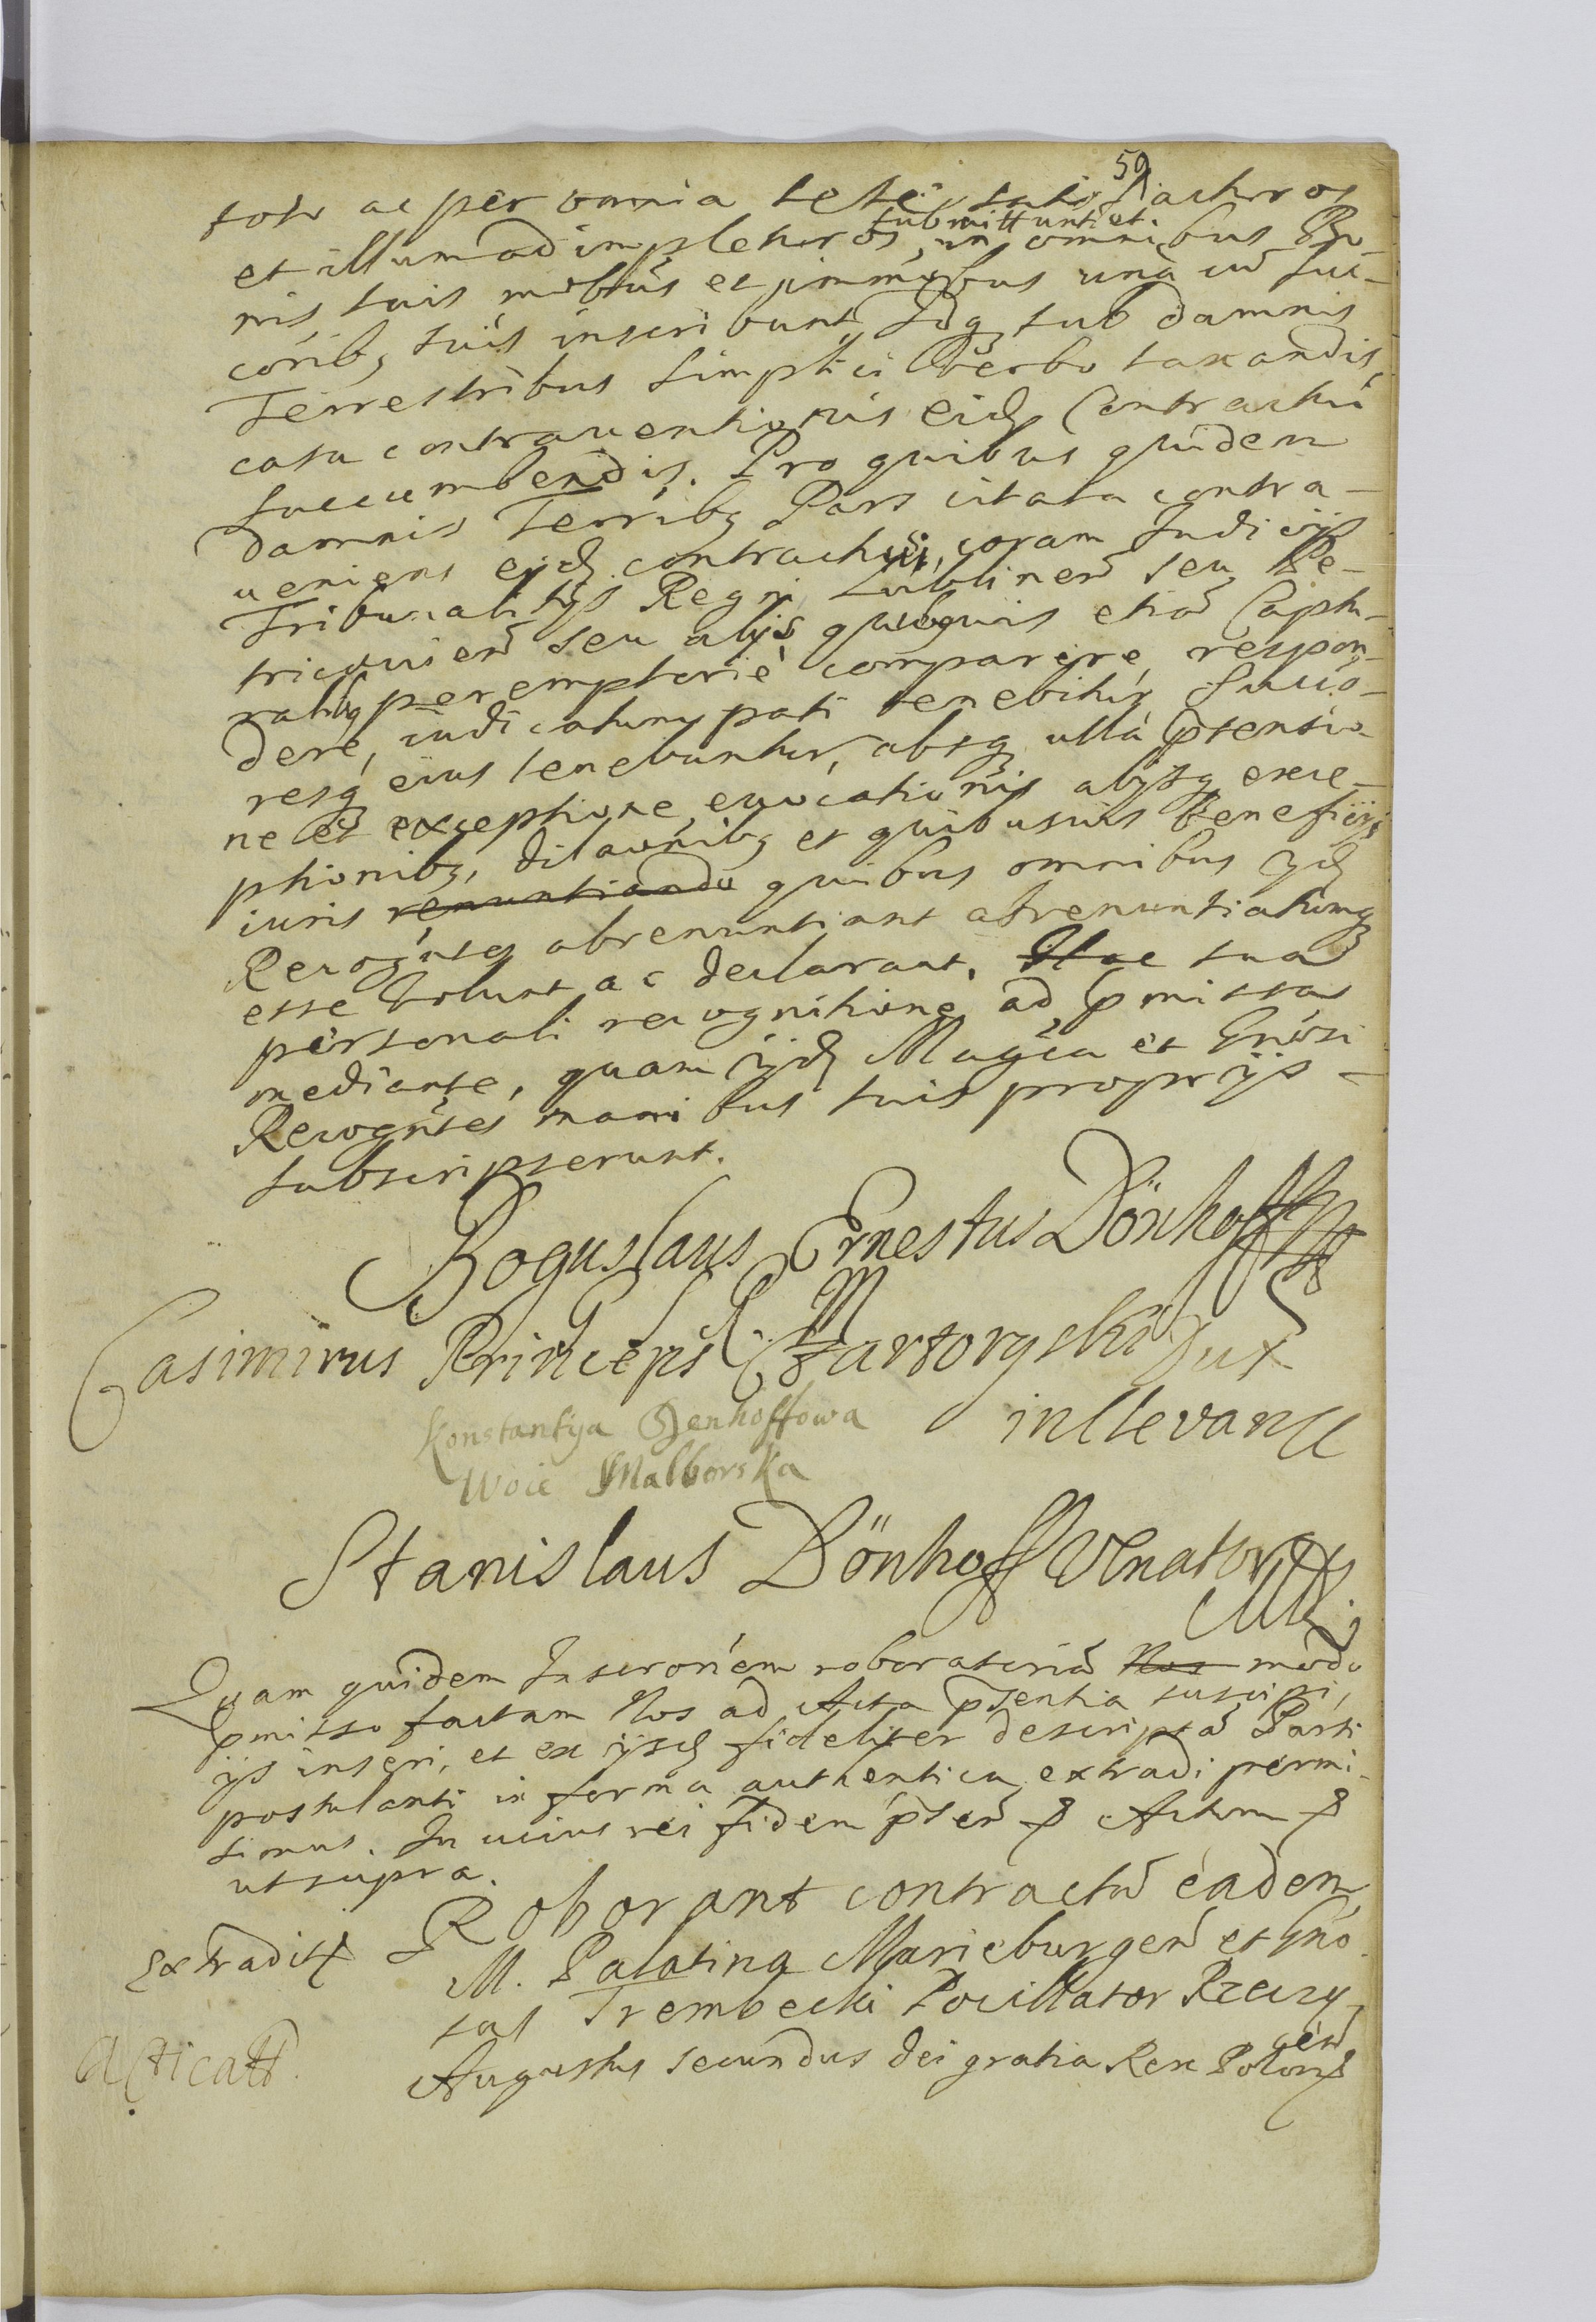 59
toto ac per omnia sese satisfacturos
submittunt et
et illum adimpleturos, in omnibus Bo-
nis suis mobibus et immobibus una cũ suc-
coribz suis inscribunt, Idqz sub damnis
Terrestribus simplici Verbo taxandis,
casu contraventionis eidz Contractui
succumbendis. Pro quibus quidem
damnis Terribz Pars citata contra-
veniens eidz contractui, coram Iudicijs
Tribunalitijs Regni Lublineñ seu Pe-
tricovieñ seu alijs quibusvis etiã Captu-
ralibz peremptorie comparere, respon-
dere, iudicatum pati tenebitur, Succo-
resqz eius tenebuntur, absqz ulla ptensio-
ne et exceptione, evocationis alijsqz exce-
ptionibz, dilaõnibz et quibusuis beneficijs
iuris renuntiando quibus omnibus ijdz
Recogñtes abrenuntiant abrenuntiatumqz
esse volunt ac declarant. Hac sua
personali recognitione ad pmissa
mediante, quam ijdz Magca et Gnõsi
Recogñtes manibus suis proprijs
subscripserunt.
Boguslaus Ernestus Dönhoff
Casimirus Princeps Czartoryski Dux
in Clevan
Konstantija Denhoffowa
Woie Malborska
Stanislaus Dönhoff Venator
MDL
Quam quidem Inscrõnem roboratoriã Nos modo
pmisso factam Nos ad Acta psentia suscipi,
ijs inseri, et ex ijsdz fideliter descriptã Parti
postulanti in forma authentica extradi permi-
simus. In cuius rei fidem pseñ Actum
ut supra.
Extradit
Roborant contractũ eadem
M. Palatina Marieburgeñ et Gno
sus Trembecki Pocillator Rzeczy
ceñ
Acticatt.
Augustus secundus dei gratia Rex Polon